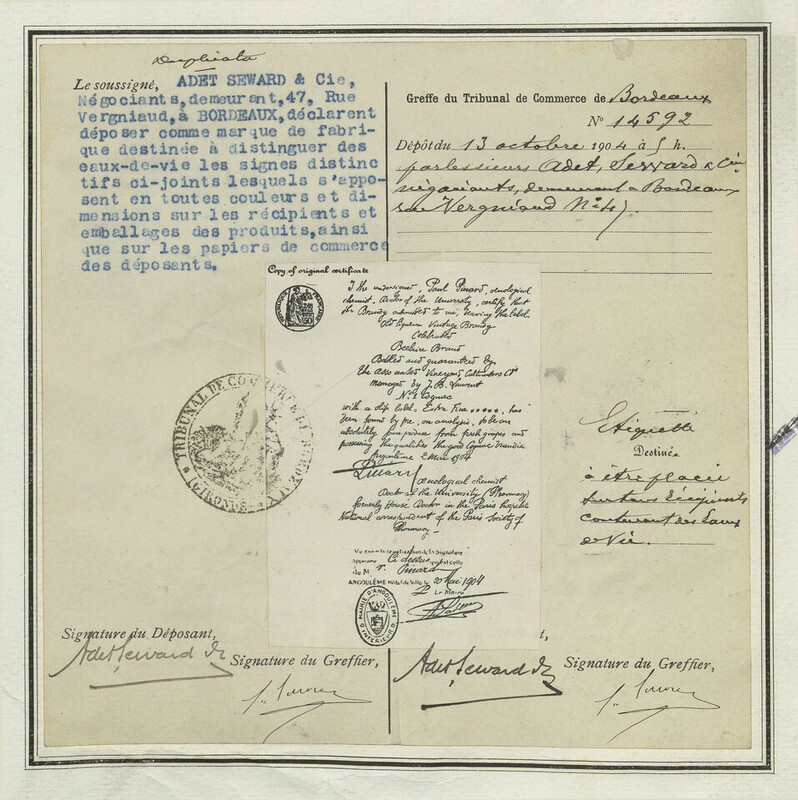 Duplicata
Le soussigné, ADET SEWARD & Cie,
Négociants, demeurant, 47, Rue
Vergniaud, à BORDEAUX, déclarent
déposer comme marque de fabri-
que destinée à distinguer des
eaux-de-vie les signes distinc
tifs ci-joints lesquels s'appo-
sent en toutes couleurs et di-
mensions sur les récipients et
emballages des produits, ainsi
que sur les papiers de commerce
des déposants.
Greffe du Tribunal de Commerce de Bordeaux
N° 14592
Dépôt du 13 octobre 1904 à 5 h.
par Messieurs Adet, Seward & Cie
négociants, demeurant à Bordeaux
rue Vergniaud N° 47
Copy of original certificate
I the undersigned, Paul Pinard, œnological
chemist, Doctor of the University, certify that
the Brandy submitted to me, bearing the label
Old liqueur Vintage Brandy
Celebrated
Beehive Brand
Bottled and guaranteed by
the Associated Vineyard Cultivators Cy
managed by J. B. Laurent
N° 1 Cognac
with a slip label: Extra Fine *****, has
been found by me, on analysis, to be an
absolutely pure produce from fresh grapes and
possessing the qualities of the good Cognac brandies
Angoulême 2 Mai 1904
Pinard
œnological chemist
Doctor of the University (Pharmacy)
formerly House Doctor in the Paris hospitals
National correspondent of the Paris Society of
Pharmacy
Vu pour la légalisation de la Signature
apposée Ci dessus
de M r. Pinard
ANGOULÊME Hôtel de Ville le 20 Mai 1904
Le Maire
MAIRIE D'ANGOULÊME
TRIBUNAL DE COMMERCE DE BORDEAUX
Etiquette
Destinée
à être placée
sur tous Récipients
contenant des Eaux
de Vie.
Signature du Déposant,
Adet Seward &
Signature du Greffier,
Adet Seward &
Signature du Greffier,